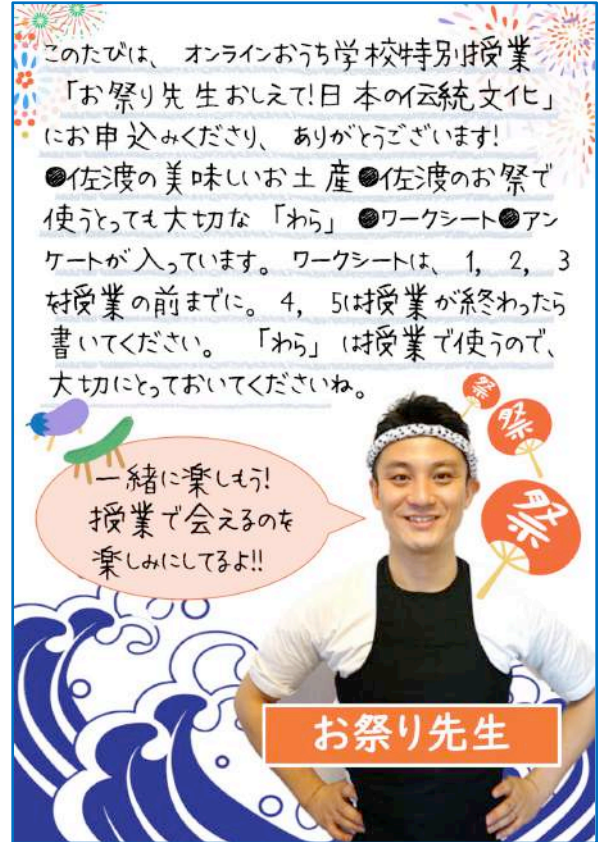 このたびは、 オンラインおうち学校特別授業
「お祭り先生おしえて!日本の伝統文化」
にお申込みくださり、 ありがとうございます!
●佐渡の美味しいお土産●佐渡のお祭で
使うとっても大切な 「わら」 ●ワークシート●アン
ケートが入っています。 ワークシートは、 1, 2, 3
を授業の前までに。 4, 5は授業が終わったら
書いてください。 「わら」 は授業で使うので、
大切にとっておいてくださいね。
祭
祭
祭
一緒に楽しもう!
授業で会えるのを
楽しみにしてるよ!!
お祭り先生